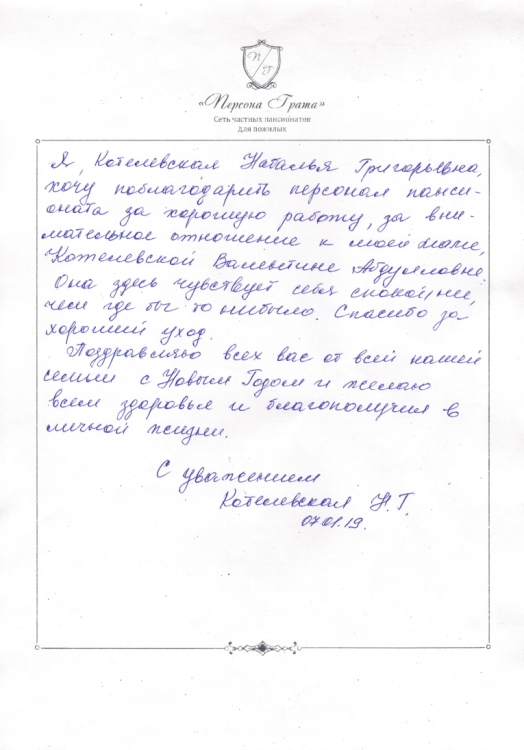 П Г
«Персона Грата»
Сеть частных пансионатов
для пожилых
Я, Котелевская Наталья Григорьевна,
хочу поблагодарить персонал панси-
оната за хорошую работу, за вни-
мательное отношение к моей маме,
Котелевской Валентине Абдулловне.
Она здесь чувствует себя спокойнее,
чем где бы то нибыло. Спасибо за
хороший уход.
Поздравляю всех вас от всей нашей
семьи с Новым Годом и желаю
всем здоровья и благополучия в
личной жизни.
С уважением
Котелевская Н.Г.
07.01.19.